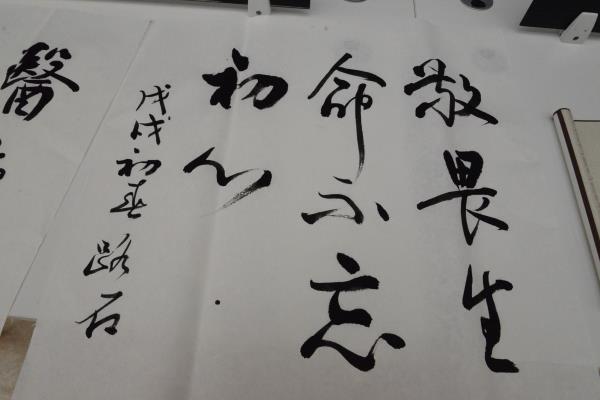 敬畏生
命不忘
初心
戊戌初春 路石
醫